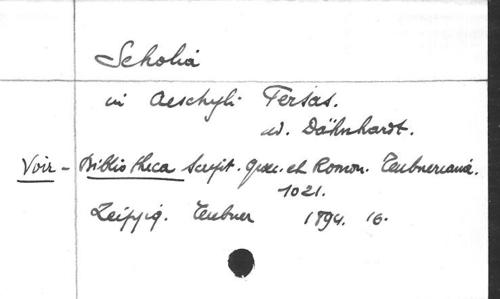 Scholia
in Aeschyli Persas.
ed. Dähnhardt.
Voir - Bibliotheca Script. Graec. et Roman. Teubneriana.
1021.
Leipzig. Teubner 1894. 16.